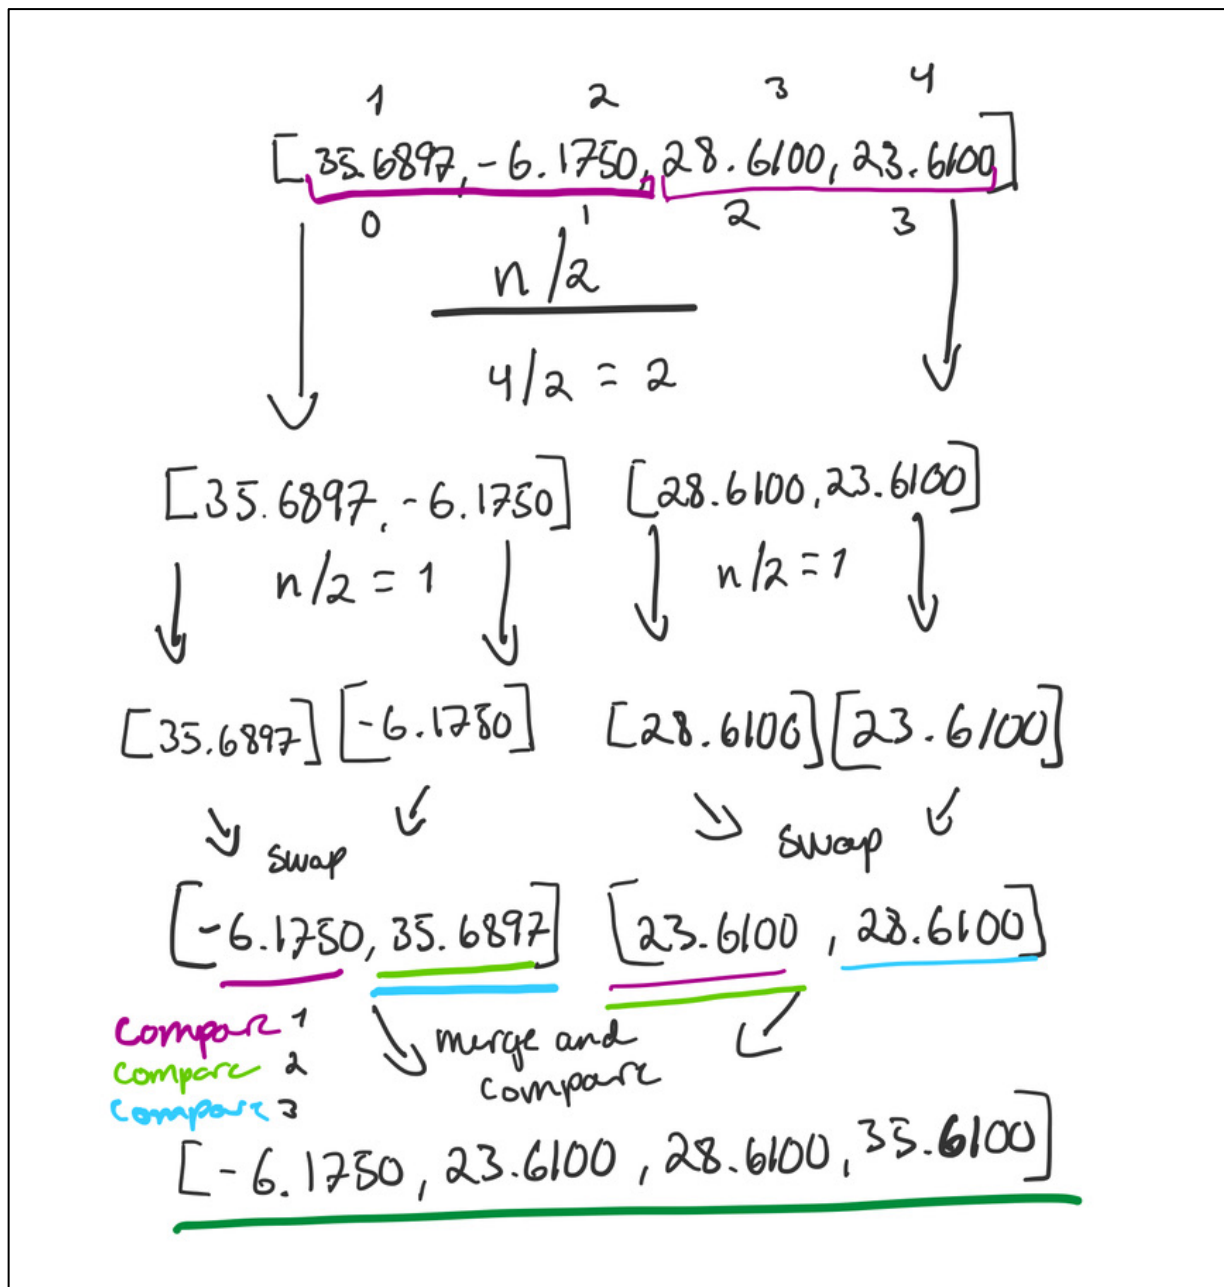 1 2 3 4
[35.6897, -6.1750, 28.6100, 23.6100]
0 1 2 3
n/2
4/2 = 2
[35.6897, -6.1750] [28.6100, 23.6100]
n/2 = 1 n/2 = 1
[35.6897] [-6.1750] [28.6100] [23.6100]
swap swap
[-6.1750, 35.6897] [23.6100, 28.6100]
Compare 1
Compare 2
Compare 3
merge and
compare
[-6.1750, 23.6100, 28.6100, 35.6100]